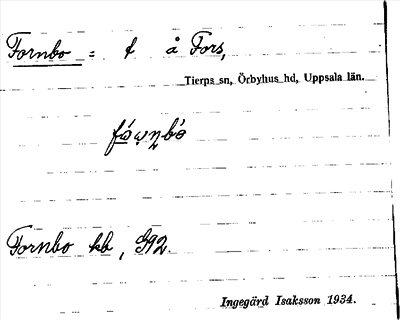 Fornbo = t å Fors,
Tierps sn, Örbyhus hd, Uppsala län.
Fornbo kb, S92.
Ingegärd Isaksson 1934.